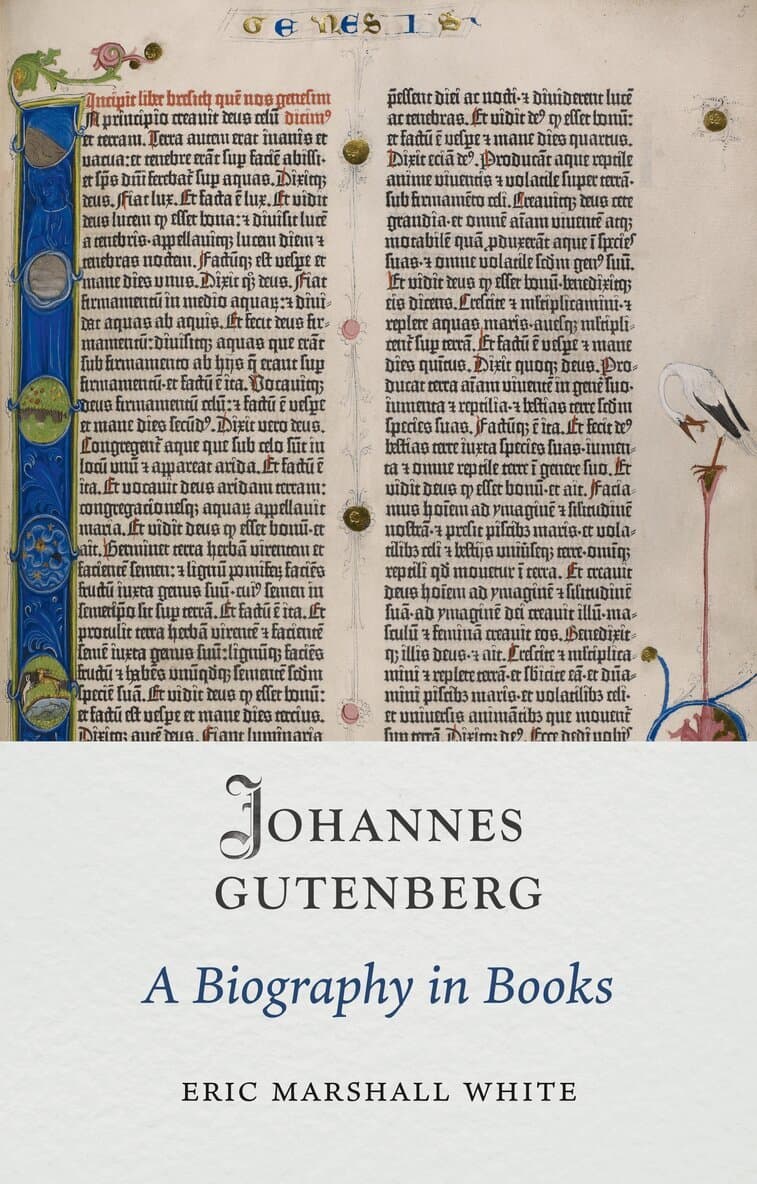 GENESIS
5
Incipit liber bresith quē nos genesim
dicim⁹
In principio creauit deus celū
et terram. Terra autem erat inanis et
vacua: et tenebre erāt sup faciē abissi·
et spūs dūi ferebat̄ sup aquas. Dixitꝙ
deus. Fiat lux. Et facta ē lux. Et vidit
deus lucem ꝙ esset bona: ⁊ diuisit lucē
a tenebris·appellauitꝙ lucem diem ⁊
tenebras noctem. Factūꝙ est vespe et
mane dies vnus. Dixit ꝙ̄ deus. Fiat
firmamentū in medio aquaꝝ: ⁊ diui-
dat aquas ab aquis. Et fecit deus fir-
mamentū: diuisitꝙ aquas que erāt
sub firmamento ab hijs q̄ erant sup
firmamentū·et factū ē ita. Vocauitꝙ
deus firmamentū celū: ⁊ factū ē vespe
et mane dies secūd⁹. Dixit vero deus.
Congregent̄ aque que sub celo sūt in
locū vnū ⁊ appareat arida. Et factū ē
ita. Et vocauit deus aridam terram:
congregacionesꝙ aquaꝝ appellauit
maria. Et vidit deus ꝙ esset bonū·et
ait. Germinet terra herbā virentem et
facientē semen: ⁊ lignū pomiferū faciēs
fructū iuxta genus suū·cui⁹ semen in
semetipo sit sup terrā. Et factū ē ita. Et
protulit terra herbā virentē ⁊ facientē
semē iuxta genus suū: lignūꝙ faciēs
fructū ⁊ habēs vnūqdꝙ sementē scdm
speciē suā. Et vidit deus ꝙ esset bonū:
et factū est vespe et mane dies tercius.
Dixitꝙ autē deus. Fiant luminaria
p̄essent diei ac nocti· ⁊ diuiderent lucē
ac tenebras. Et vidit de⁹ ꝙ esset bonū:
et factū ē vespe ⁊ mane dies quartus.
Dixit eciā de⁹. Producāt aque reptile
anime viuentis ⁊ volatile super terrā·
sub firmamēto celi. Creauitꝙ deus cete
grandia·et omnē aīam viuentē atꝙ
motabilē quā ꝓduxerāt aque ī species
suas· ⁊ omne volatile scdm gen⁹ suū.
Et vidit deus ꝙ esset bonū·benedixitꝙ
eis dicens. Crescite ⁊ mltiplicamini· ⁊
replete aquas maris·auesꝙ mltipli-
cent̄ sup terrā. Et factū ē vespe ⁊ mane
dies quītus. Dixit quoꝙ deus. Pro-
ducat terra aīam viuentē in genē suo·
iumenta ⁊ reptilia· ⁊ bestias terre scdm
species suas. Factūꝙ ē ita. Et fecit de⁹
bestias terre iuxta species suas·iumen-
ta ⁊ omne reptile terre ī genere suo. Et
vidit deus ꝙ esset bonū·et ait. Facia-
mus hoīem ad ymaginē ⁊ silitudinē
nostrā· ⁊ presit piscibꝫ maris·et vola-
tilibꝫ celi ⁊ bestijs vniūseꝙ terre·omīꝙ
reptili qd mouetur ī terra. Et creauit
deus hoīem ad ymaginē ⁊ silitudinē
suā·ad ymaginē dei creauit illū·ma-
sculū ⁊ feminā creauit eos. Benedixit-
ꝙ illis deus· ⁊ ait. Crescite ⁊ mltiplica-
mini ⁊ replete terrā·et sbicite eā·et dūa-
mini piscibꝫ maris·et volatilibꝫ celi·
et vniuersis animātibꝫ que mouent̄
sup terrā. Dixitꝙ de⁹. Ecce dedi vobis
JOHANNES
GUTENBERG
A Biography in Books
ERIC MARSHALL WHITE